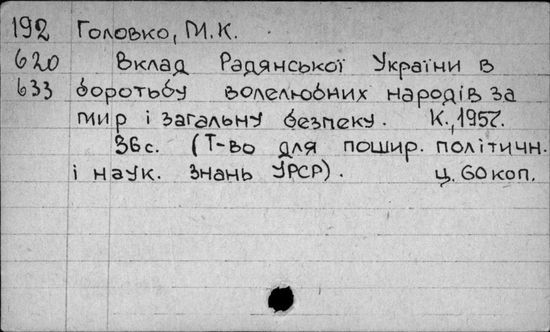 192 Головко, М.К.
620 Вклад Радянської України в
633 боротьбу волелюбних народів за
мир і загальну безпеку. К., 1957.
36с. (Т-во для пошир. політичн.
і наук. знань УРСР). ц. 60 коп.